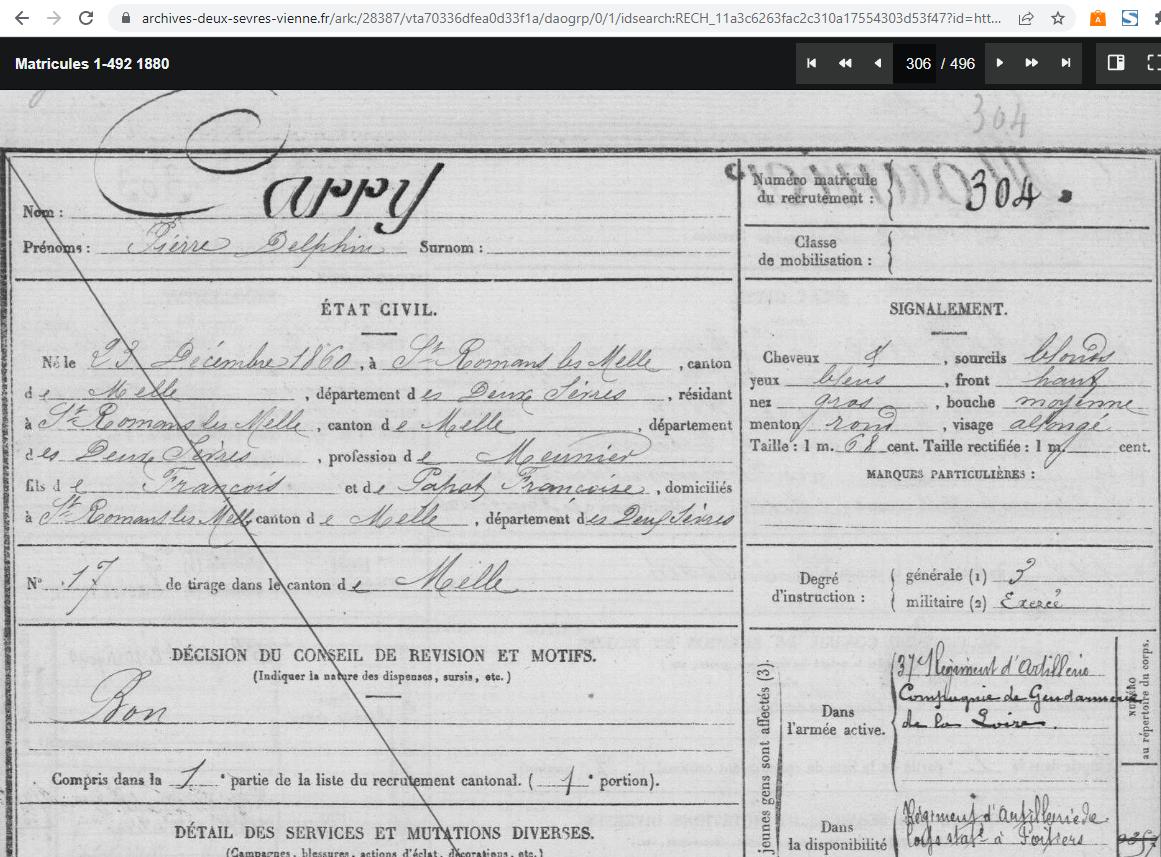 archives-deux-sevres-vienne.fr/ark:/28387/vta70336dfea0d33f1a/daogrp/0/1/idsearch:RECH_11a3c6263fac2c310a17554303d53f47?id=htt...
Matricules 1-492 1880
306 / 496
304
Nom : Cappy
Prénoms : Pierre Delphin Surnom :
ÉTAT CIVIL.
Né le 23 Décembre 1860, à St Romans les Melle, canton
de Melle, département des Deux Sèvres, résidant
à St Romans les Melle, canton de Melle, département
des Deux Sèvres, profession de Meunier
fils de François et de Papot Françoise, domiciliés
à St Romans les Melle, canton de Melle, département des Deux Sèvres
N° 17 de tirage dans le canton de Melle
DÉCISION DU CONSEIL DE REVISION ET MOTIFS.
(Indiquer la nature des dispenses, sursis, etc.)
Bon
Compris dans la 1e partie de la liste du recrutement cantonal. (1e portion).
DÉTAIL DES SERVICES ET MUTATIONS DIVERSES.
(Campagnes, blessures, actions d'éclat, décorations, etc.)
Numéro matricule
du recrutement : 304
Classe
de mobilisation :
SIGNALEMENT.
Cheveux &, sourcils blonds
yeux bleus, front haut
nez gros, bouche moyenne
menton rond, visage allongé
Taille : 1 m. 68 cent. Taille rectifiée : 1 m. cent.
MARQUES PARTICULIÈRES :
Degré
d'instruction :
générale (1) 3
militaire (2) Exercé
jeunes gens sont affectés (3).
Dans
l'armée active.
37e Régiment d'Artillerie
Compagnie de Gendarmerie
de la Loire
NUMÉRO
au répertoire du corps.
Dans
la disponibilité
Régiment d'Artillerie de
Corps stat. à Poitiers